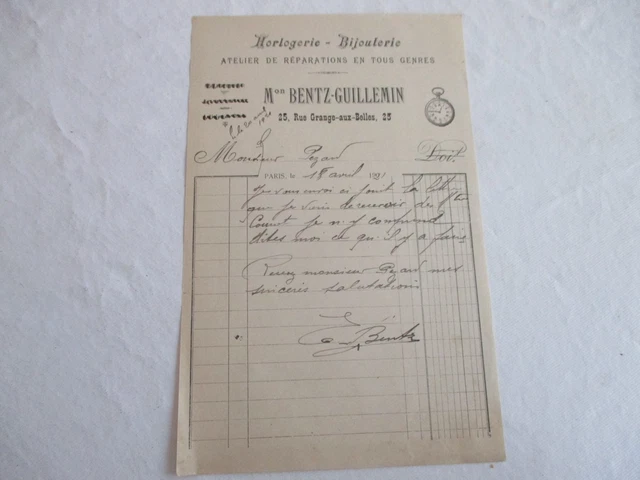 Horlogerie - Bijouterie
ATELIER DE RÉPARATIONS EN TOUS GENRES
Mon BENTZ-GUILLEMIN
25, Rue Grange-aux-Belles, 25
Monsieur Pezard Doit
PARIS, le 18 avril
Je vous envoi ci joint la
que je viens de recevoir de
Je n'y comprend
dites moi ce qu'il y a faire
Recevez monsieur Pezard mes
sincères salutations
E Bentz